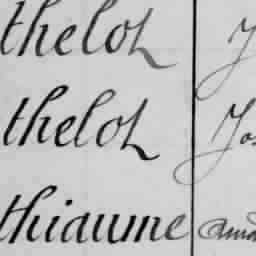 thelot J
thelot Jos
thiaume Ama